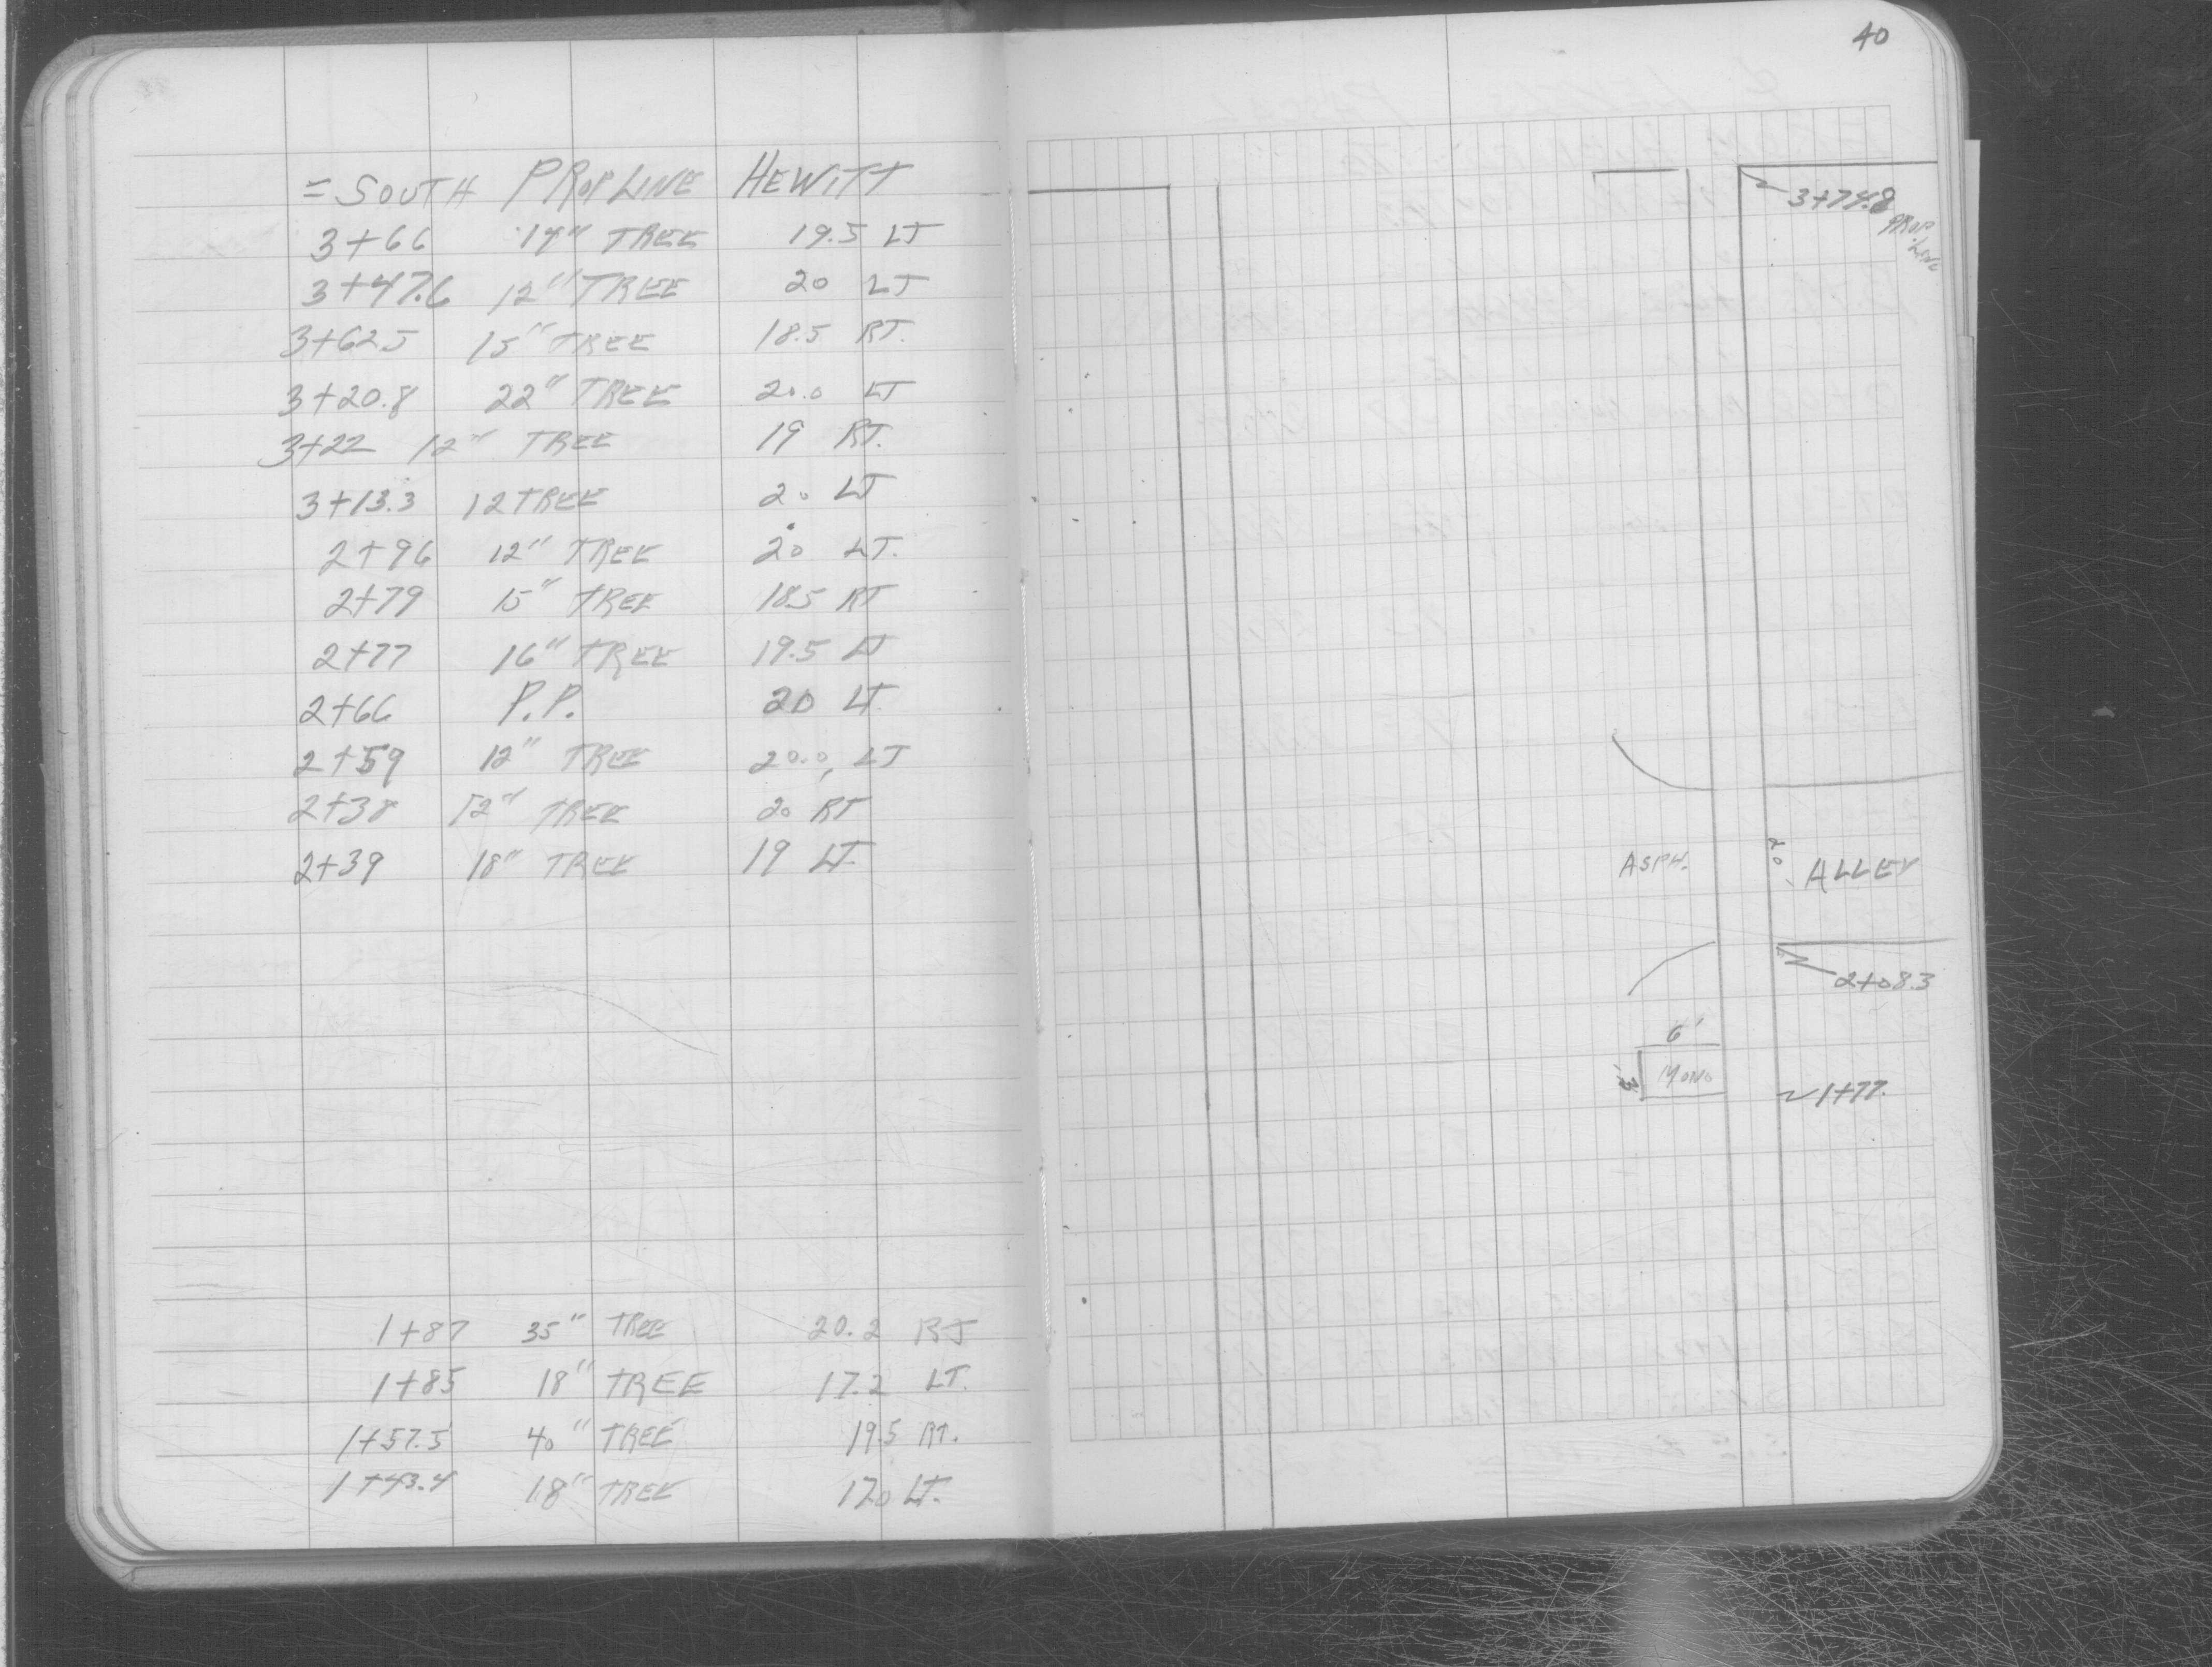 = SOUTH PROP LINE HEWITT
3+66 14" TREE 19.5 LT
3+47.6 12" TREE 20 LT
3+62.5 15" TREE 18.5 RT.
3+20.8 22" TREE 20.0 LT
3+22 12" TREE 19 RT.
3+13.3 12 TREE 20 LT
2+96 12" TREE 20 LT.
2+79 15" TREE 18.5 RT
2+77 16" TREE 19.5 LT
2+66 P.P. 20 LT.
2+59 12" TREE 20.0, LT
2+38 12" TREE 20 RT
2+39 18" TREE 19 LT.
1+87 35" TREE 20.2 RT
1+85 18" TREE 17.2 LT.
1+57.5 40" TREE 19.5 RT.
1+43.4 18" TREE 17.0 LT.
40
3+74.8
PROP
LINE
ASPH. 20 ALLEY
2+08.3
6'
3' MONO
1+77.